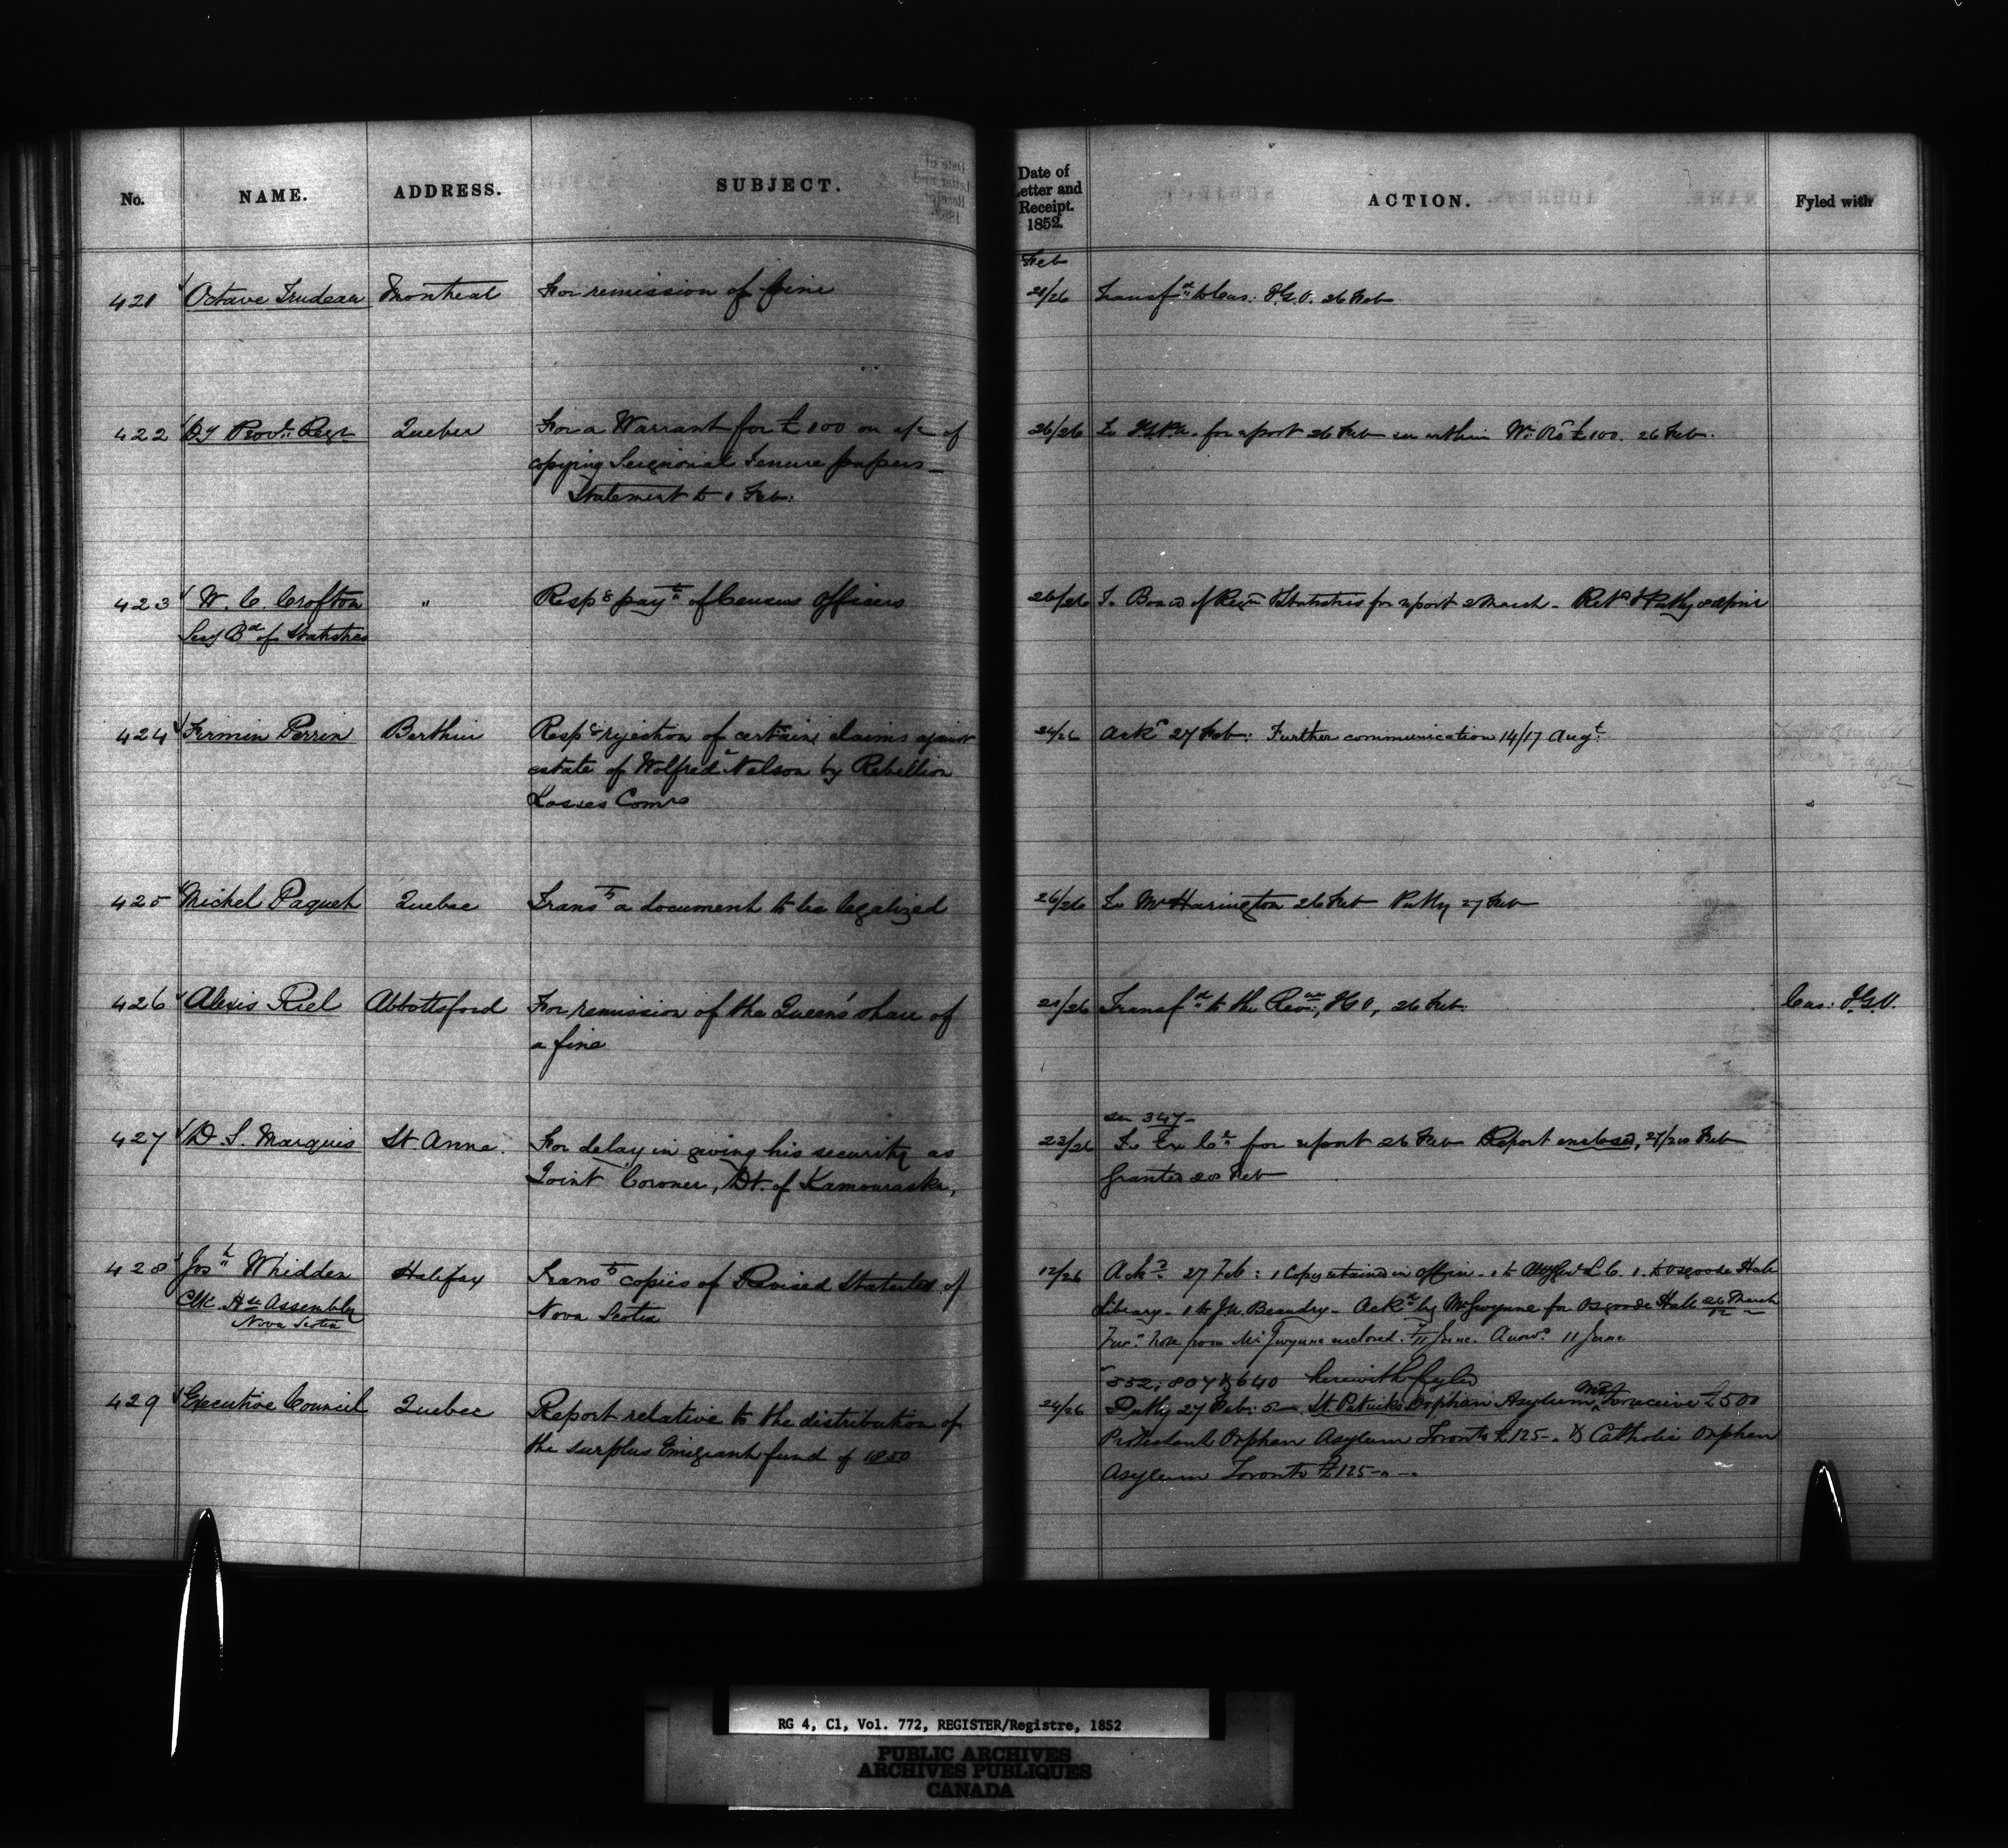 No. NAME. ADDRESS. SUBJECT. Date of Letter and Receipt. 1852. ACTION. Fyled with
Feb
421 Octave Trudeau Montreal For remission of fine 21/26 Transf.d to Cus: I.G.O. 26 Feb
422 Dy Prov.l Regr Quebec For a Warrant for £100 on a/c of 26/26 To I.G.P.A. for report 26 Feb see within Wt. Rd £100. 26 Feb.
copying Seignorial Tenure papers_
Statement to 1 Feb:
423 W. C. Crofton " Respg payt of Census Officers 26/26 To Board of Regn Statistics for report 2 March - Retd & Putby 2 April
Secy Bd of Statistics
424 Firmin Perrin Berthier Respg rejection of certain claims against 24/26 Ackd 27 Feb: Further communication 14/17 Augt
estate of Wolfred Nelson by Rebellion
Losses Comrs
425 Michel Paquet Quebec Transg a document to be legalized 26/26 To Mr Harington 26 Feb Putby 27 Feb
426 Alexis Riel Abbottsford For remission of the Queen's share of 21/26 Transf.d to the Revue, I G O, 26 Feb. Cus: I.G.O.
a fine
see 347-
427 D. S. Marquis St. Anne. For delay in giving his security as 23/26 To Ex Cl for report 26 Feb Report enclosed, 27/28 Feb
Joint Coroner, Dt. of Kamouraska, Granted 28 Feb
428 Josh Whidden Halifax Transg copies of Revised Statutes of 12/26 Ackd 27 Feb: 1 Copy retained in office - 1 to Atty Genl L.C. 1. to Osgoode Hall
Clk Hse Assembly Nova Scotia Library - 1 to J.U. Beaudry - Ackd by Mr Gwynne for Osgoode Hall 26 March
Nova Scotia Furr note from Mr Gwynne enclosed. 7/11 June. Answd 11 June
552; 807 & 640 herewith fyled
429 Executive Council Quebec Report relative to the distribution of 24/26 Putby 27 Feb: St Patricks Orphan Asylum Mtl to receive £500
the surplus Emigrant fund of 1850 Protestant Orphan Asylum Toronto £125-. & Catholic Orphan
Asylum Toronto £125-"-.
RG 4, C1, Vol. 772, REGISTER/Registre, 1852
PUBLIC ARCHIVES
ARCHIVES PUBLIQUES
CANADA